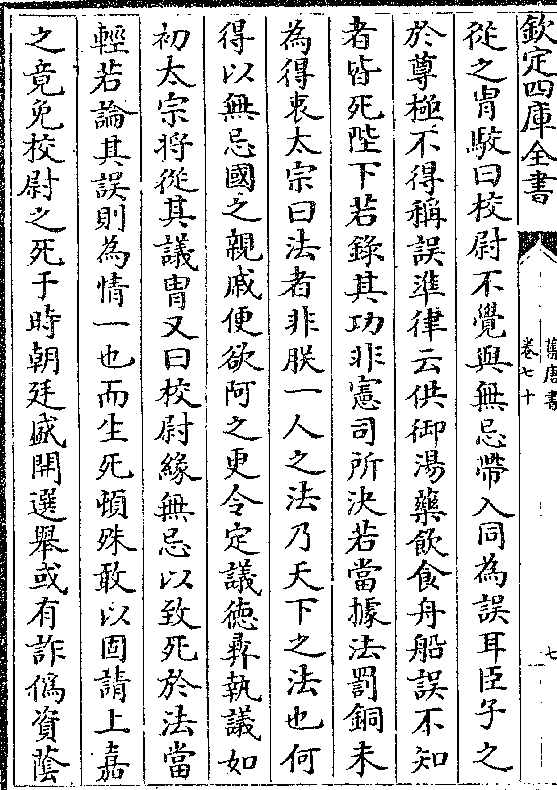 欽定四庫全書
舊唐書
卷七十
七
從之胄駮曰校尉不覺與無忌帶入同為誤耳臣子之
於尊極不得稱誤準律云供御湯藥飲食舟船誤不知
者皆死陛下若錄其功非憲司所決若當據法罰銅未
為得衷太宗曰法者非朕一人之法乃天下之法也何
得以無忌國之親戚便欲阿之更令定議德彞執議如
初太宗将從其議胄又曰校尉緣無忌以致死於法當
輕若論其誤則為情一也而生死頓殊敢以固請上嘉
之竟免校尉之死于時朝廷盛開選舉或有詐僞資蔭